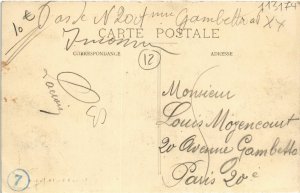 113124
10 €
Pas de N° 20 Avenue Gambetta XX
Inconnu
CARTE POSTALE
CORRESPONDANCE
ADRESSE
12
Monsieur
Louis Mozencourt
20 Avenue Gambetta
Paris 20e
7